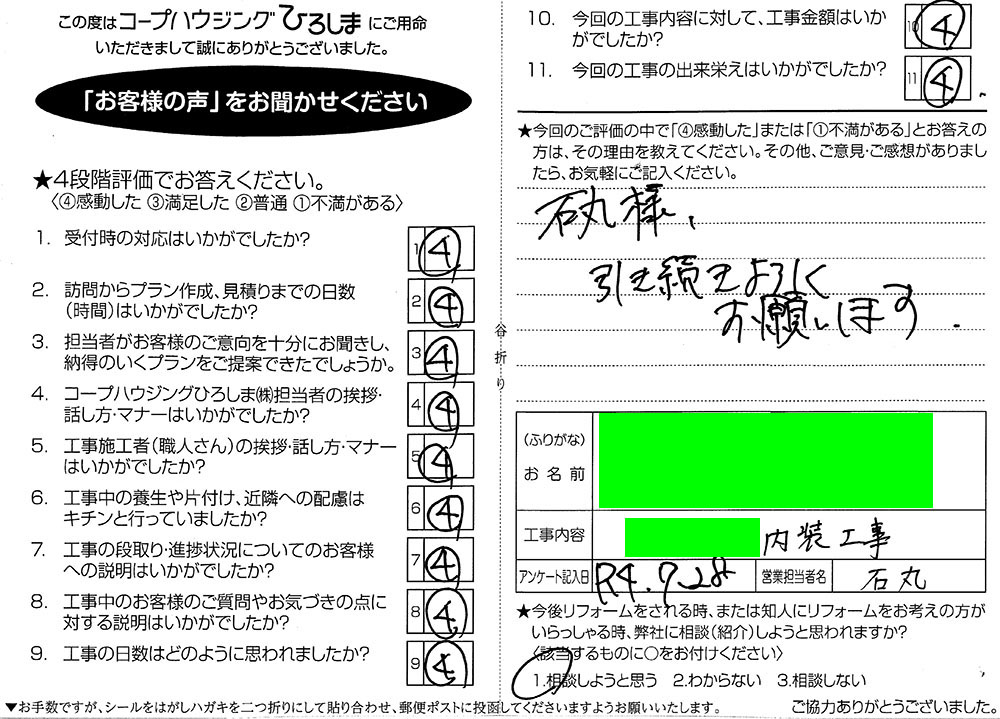 この度はコープハウジングひろしまにご用命
いただきまして誠にありがとうございました。
「お客様の声」をお聞かせください
★4段階評価でお答えください。
〈④感動した ③満足した ②普通 ①不満がある〉
1. 受付時の対応はいかがでしたか?
1 4
2. 訪問からプラン作成、見積りまでの日数
(時間)はいかがでしたか?
2 4
3. 担当者がお客様のご意向を十分にお聞きし、
納得のいくプランをご提案できたでしょうか。
3 4
4. コープハウジングひろしま㈱担当者の挨拶・
話し方・マナーはいかがでしたか?
4 4
5. 工事施工者(職人さん)の挨拶・話し方・マナー
はいかがでしたか?
5 4
6. 工事中の養生や片付け、近隣への配慮は
キチンと行っていましたか?
6 4
7. 工事の段取り・進捗状況についてのお客様
への説明はいかがでしたか?
7 4
8. 工事中のお客様のご質問やお気づきの点に
対する説明はいかがでしたか?
8 4
9. 工事の日数はどのように思われましたか?
9 4
▼お手数ですが、シールをはがしハガキを二つ折りにして貼り合わせ、郵便ポストに投函してくださいますようお願いいたします。
谷折り
10. 今回の工事内容に対して、工事金額はいか
がでしたか?
10 4
11. 今回の工事の出来栄えはいかがでしたか?
11 4
★今回のご評価の中で「④感動した」または「①不満がある」とお答えの
方は、その理由を教えてください。その他、ご意見・ご感想がありまし
たら、お気軽にご記入ください。
石丸様、
引き続きよろしく
お願いします.
(ふりがな)
お名前
工事内容 内装工事
アンケート記入日 R4.7.28 営業担当者名 石丸
★今後リフォームをされる時、または知人にリフォームをお考えの方が
いらっしゃる時、弊社に相談(紹介)しようと思われますか?
〈該当するものに○をお付けください〉
1.相談しようと思う 2.わからない 3.相談しない
ご協力ありがとうございました。